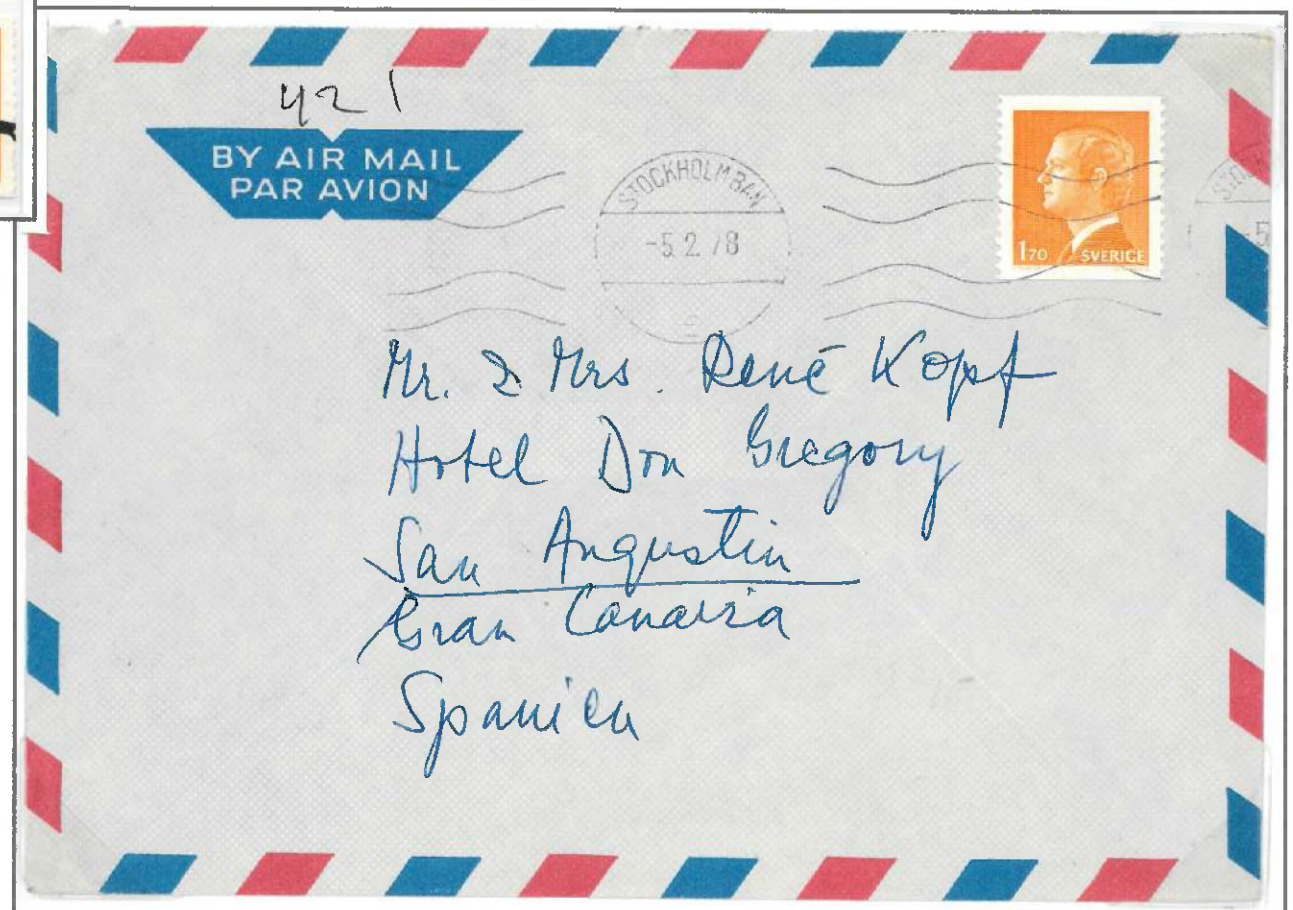 421
BY AIR MAIL
PAR AVION
STOCKHOLM BAN
-5.2.78
170 SVERIGE
-5
Mr. & Mrs. René Kopf
Hotel Don Gregory
San Angustin
Gran Canaria
Spanien